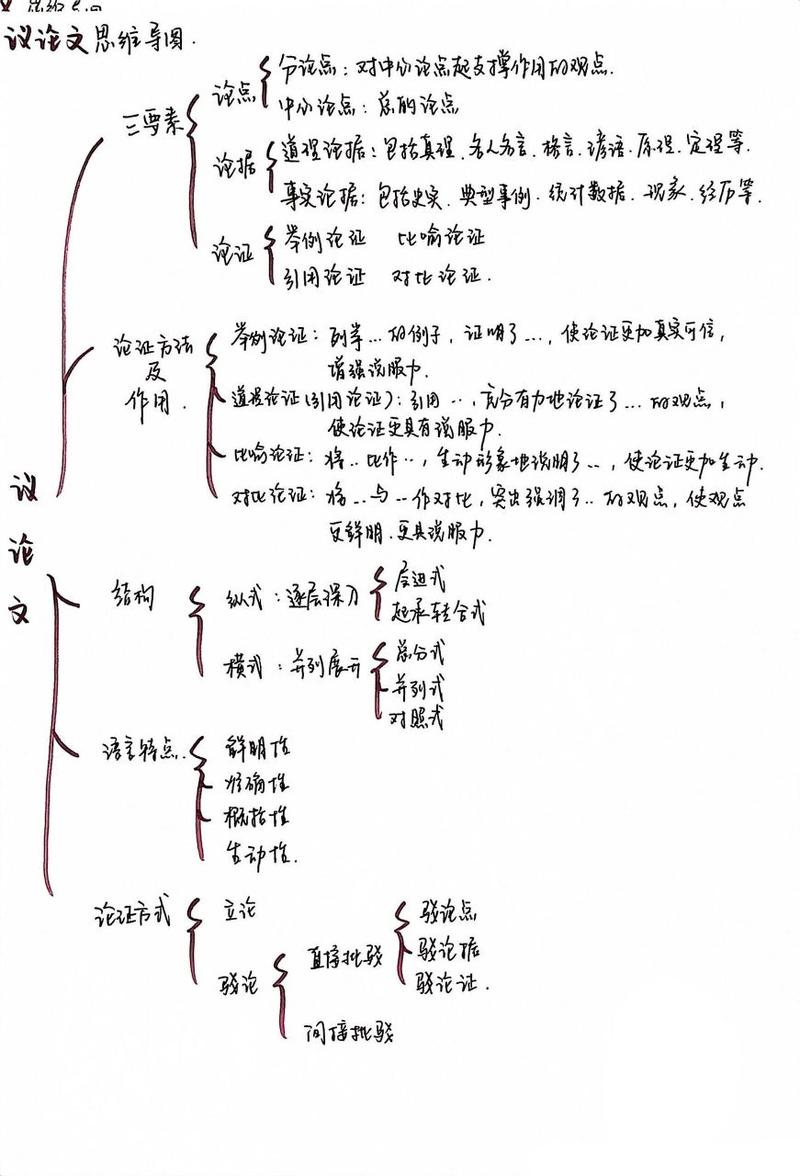 议论文思维导图.
三要素
论点
分论点：对中心论点起支撑作用的观点.
中心论点：总的论点
论据
道理论据：包括真理、名人名言、格言、谚语、原理、定理等.
事实论据：包括史实、典型事例、统计数据、现象、经历等.
论证
举例论证 比喻论证
引用论证 对比论证.
论证方法
及
作用.
举例论证：列举…的例子，证明了…，使论证更加真实可信，
增强说服力.
道理论证(引用论证)：引用…，充分有力地论证了…的观点，
使论证更具有说服力.
比喻论证：将..比作…，生动形象地说明了…，使论证更加生动.
对比论证：将…与…作对比，突出强调了..的观点，使观点
更鲜明.更具说服力.
议
论
文
结构
纵式：逐层深刀
层进式
起承转合式
横式：并列展开
总分式
并列式
对照式
语言特点.
鲜明性
准确性
概括性
生动性.
论证方式
立论
驳论
直接批驳
驳论点
驳论据
驳论证.
间接批驳